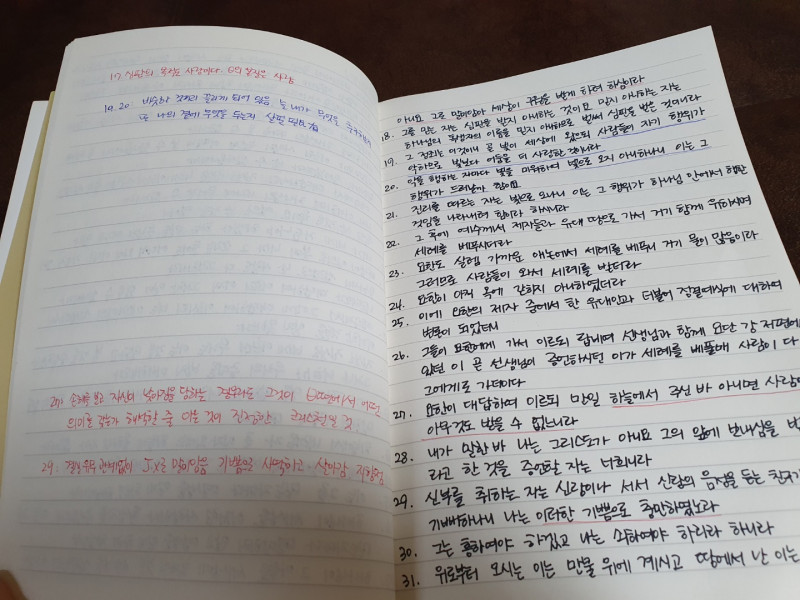 17. 심판의 목적도 사랑이다. G의 본질은 사랑
19.20 비슷한 것끼리 끌리게 되어 있음 늘 내가 무엇을
또 나의 곁에 무엇을 두는지 살필 필요有
27. 손해를 보고 자신이 낮아짐을 당하는 경우라도 그것이 땅에서
의미로 해석할 줄 아는 것이 진정한 크리스천일 것.
29. 결과 관계없이 J.X로 말미암음 기쁨으로 사역하고 살아감
아니요 그로 말미암아 세상이 구원을 받게 하려 하심이라
18. 그를 믿는 자는 심판을 받지 아니하는 것이요 믿지 아니하는 자는
하나님의 독생자의 이름을 믿지 아니하므로 벌써 심판을 받은 것이니라
19. 그 정죄는 이것이니 곧 빛이 세상에 왔으되 사람들이 자기 행위가
악하므로 빛보다 어둠을 더 사랑한 것이니라
20. 악을 행하는 자마다 빛을 미워하여 빛으로 오지 아니하나니 이는 그
행위가 드러날까 함이요
21. 진리를 따르는 자는 빛으로 오나니 이는 그 행위가 하나님 안에서 행한
것임을 나타내려 함이라 하시니라
22. 그 후에 예수께서 제자들과 유대 땅으로 가서 거기 함께 유하시며
세례를 베푸시더라
23. 요한도 살렘 가까운 애논에서 세례를 베푸니 거기 물이 많음이라
그러므로 사람들이 와서 세례를 받더라
24. 요한이 아직 옥에 갇히지 아니하였더라
25. 이에 요한의 제자 중에서 한 유대인과 더불어 정결예식에 대하여
변론이 되었더니
26. 그들이 요한에게 가서 이르되 랍비여 선생님과 함께 요단 강 저편에
있던 이 곧 선생님이 증언하시던 이가 세례를 베풀매 사람이 다
그에게로 가더이다
27. 요한이 대답하여 이르되 만일 하늘에서 주신 바 아니면 사람이
아무것도 받을 수 없느니라
28. 내가 말한 바 나는 그리스도가 아니요 그의 앞에 보내심을 받
라고 한 것을 증언할 자는 너희니라
29. 신부를 취하는 자는 신랑이나 서서 신랑의 음성을 듣는 친구가
기뻐하나니 나는 이러한 기쁨으로 충만하였노라
30. 그는 흥하여야 하겠고 나는 쇠하여야 하리라 하니라
31. 위로부터 오시는 이는 만물 위에 계시고 땅에서 난 이는